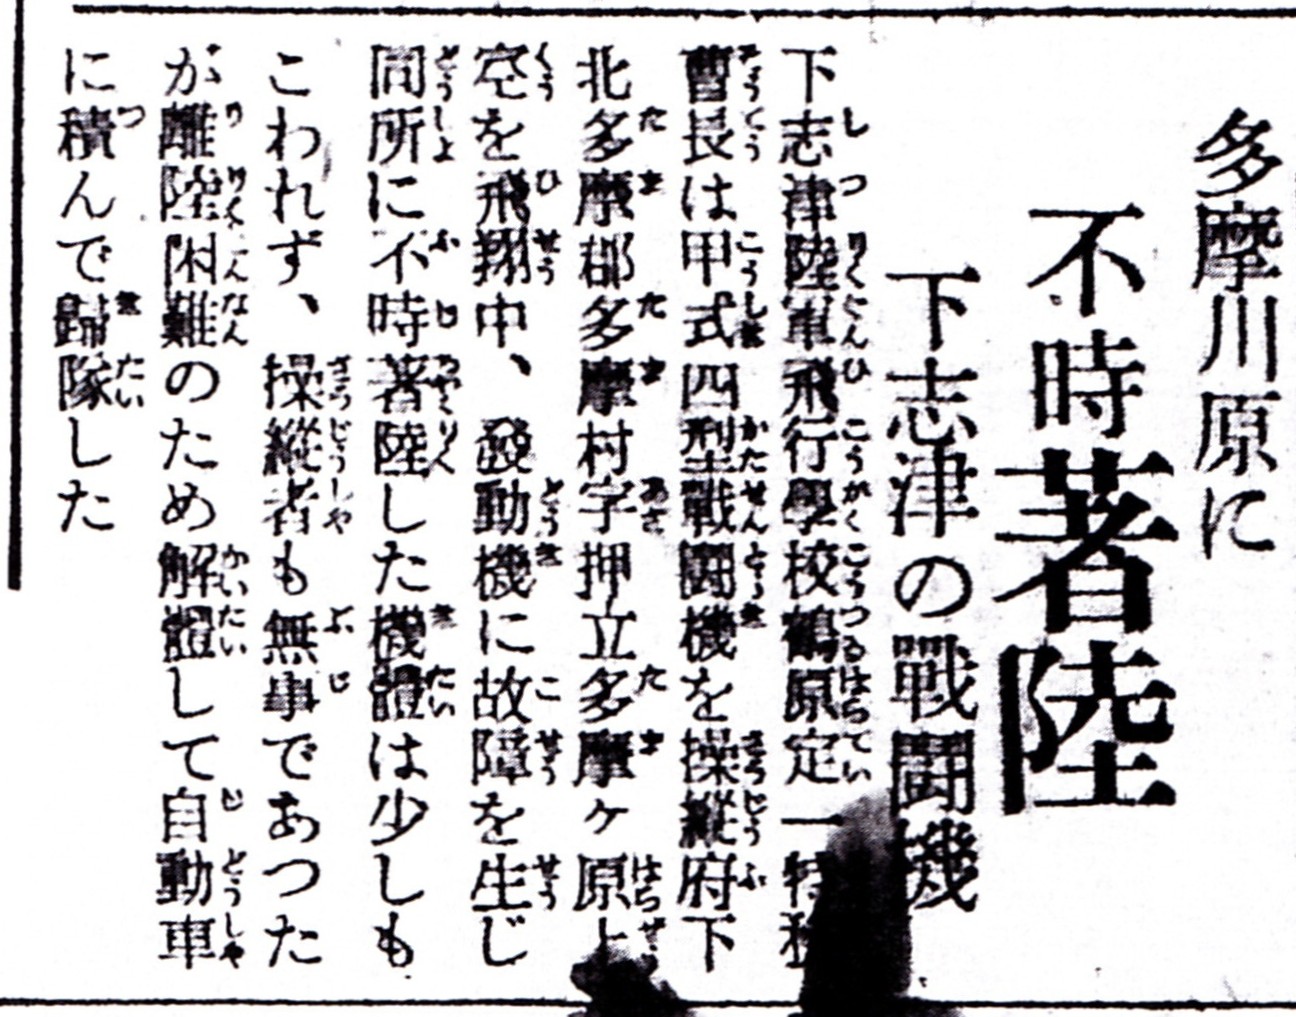 多摩川原に
不時著陸
下志津の戰鬪機
下志津陸軍飛行學校鶴原定一特務
曹長は甲式四型戰鬪機を操縱府下
北多摩郡多摩村字押立多摩ヶ原上
空を飛翔中、發動機に故障を生じ
同所に不時著陸した機體は少しも
こわれず、操縱者も無事であつた
が離陸困難のため解體して自動車
に積んで歸隊した